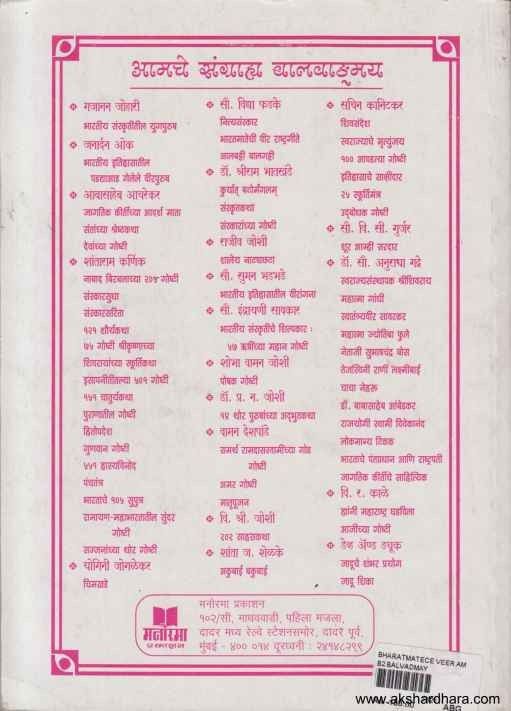 आमचे संग्राह्य बालवाङ्मय
❖ गजानन जोहारी
भारतीय संस्कृतीतील युगपुरुष
❖ जनार्दन ओक
भारतीय इतिहासातील
पडद्याआड गेलेले वीरपुरुष
❖ आबासाहेब आचरेकर
जागतिक कीर्तीच्या आदर्श माता
संतांच्या श्रेष्ठकथा
देवांच्या गोष्टी
❖ शांताराम कर्णिक
नाबाद बिरबलाच्या २०४ गोष्टी
संस्कारसुधा
संस्कारसरिता
१२१ शौर्यकथा
७५ गोष्टी श्रीकृष्णाच्या
शिवरायांच्या स्फूर्तिकथा
इसापनीतीतल्या ५०१ गोष्टी
१५१ चातुर्यकथा
पुराणातील गोष्टी
हितोपदेश
गुणवान गोष्टी
५५१ हास्यविनोद
पंचतंत्र
भारताचे १०५ सुपुत्र
रामायण-महाभारतातील सुंदर
गोष्टी
सज्जनांच्या थोर गोष्टी
❖ योगिनी जोगळेकर
चिमखडे
❖ सौ. विद्या फडके
नित्यसंस्कार
भारतमातेची वीर राष्ट्रगीते
आलबट्टी बालगट्टी
❖ डॉ. श्रीराम भातखंडे
कुर्यात् बटोर्मंगलम्
संस्कृतकथा
संस्कारांच्या गोष्टी
❖ राजीव जोशी
शालेय नाट्यछटा
❖ सौ. सुमन भडभडे
भारतीय इतिहासातील वीरांगना
❖ सौ. इंद्रायणी सावकार
भारतीय संस्कृतीचे शिल्पकार :
५७ ऋषींच्या महान गोष्टी
❖ शोभा वामन जोशी
पोषक गोष्टी
❖ डॉ. प्र. न. जोशी
१४ थोर पुरुषांच्या अद्भुतकथा
❖ वामन देशपांडे
समर्थ रामदासस्वामींच्या गोड
गोष्टी
अमर गोष्टी
मातृपूजन
❖ वि. श्री. जोशी
२०२ साहसकथा
❖ शांता ज. शेळके
सकुबाई बकुबाई
❖ सचिन कानिटकर
शिवसंदेश
स्वराज्याचे मृत्युंजय
१०० आवडत्या गोष्टी
इतिहासाचे साक्षीदार
२५ स्फूर्तिमंत्र
उद्बोधक गोष्टी
❖ सौ. वि. सी. गुर्जर
शूर आम्ही सरदार
❖ डॉ. सौ. अनुराधा गद्रे
स्वराज्यसंस्थापक श्रीशिवराय
महात्मा गांधी
स्वातंत्र्यवीर सावरकर
महात्मा ज्योतिबा फुले
नेताजी सुभाषचंद्र बोस
तेजस्विनी राणी लक्ष्मीबाई
चाचा नेहरू
डॉ. बाबासाहेब आंबेडकर
राजयोगी स्वामी विवेकानंद
लोकमान्य टिळक
भारताचे पंतप्रधान आणि राष्ट्रपती
जागतिक कीर्तीचे साहित्यिक
❖ वि. र. काळे
ह्यांनी महाराष्ट्र घडविला
आजीच्या गोष्टी
❖ डेव्ह अ‍ॅण्ड ड्यूक
जादूचे शंभर प्रयोग
जादू शिका
मनोरमा
प्रकाशन
मनोरमा प्रकाशन
१०२/सी, माधववाडी, पहिला मजला,
दादर मध्य रेल्वे स्टेशनसमोर, दादर पूर्व,
मुंबई - ४०० ०१४ दूरध्वनी : २४१४८२९९
BHARATMATECE VEER AM
B2 BALVADMAY
ABG
www.akshardhara.com